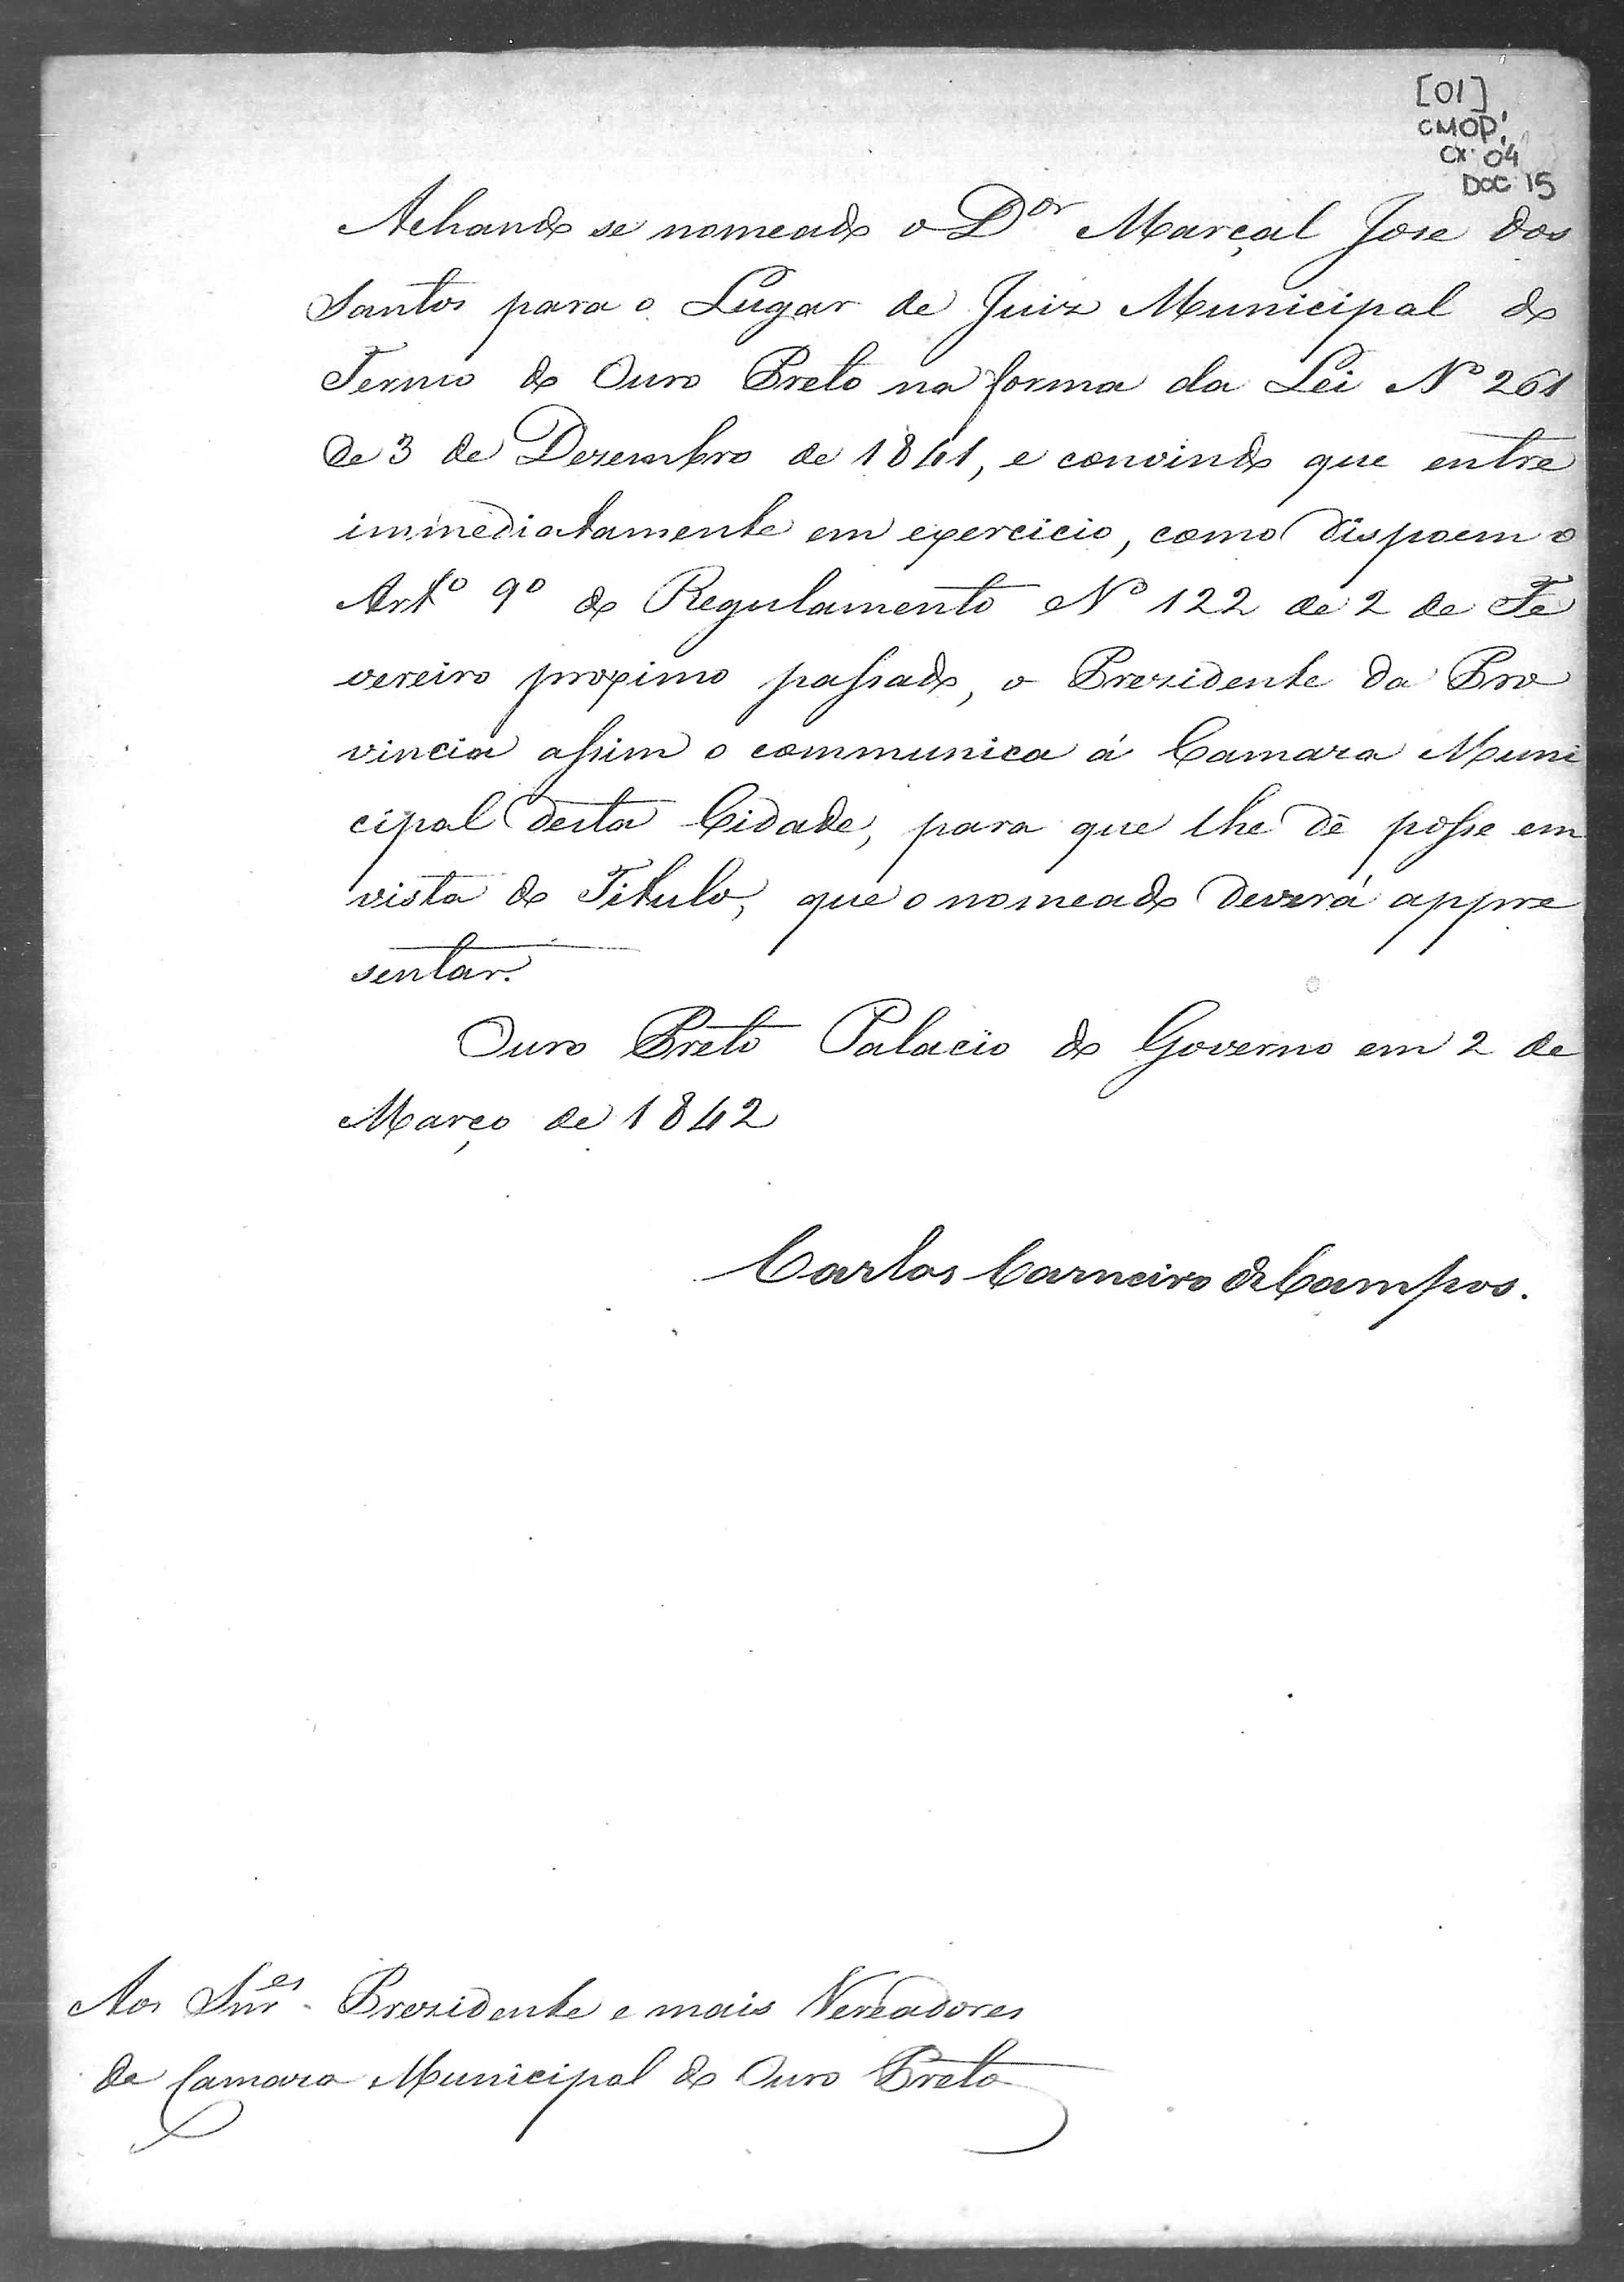 [01]
CMOP
CX. 04
DOC 15
Achando se nomeado o Dor Marçal Jose dos
Santos para o Lugar de Juiz Municipal do
Termo do Ouro Preto na forma da Lei No 261
de 3 de Dezembro de 1841, e convindo que entre
immediatamente em exercicio, como dispoem o
Arto 9o do Regulamento No 122 de 2 de Fe
vereiro proximo passado, o Prezidente da Pro
vincia assim o communica á Camara Muni
cipal desta Cidade, para que lhe dê posse em
vista do Titulo, que o nomeado deverá appre
sentar.
Ouro Preto Palacio do Governo em 2 de
Março de 1842
Carlos Carneiro de Campos.
Aos Snres Prezidente e mais Vereadores
da Camara Municipal do Ouro Preto